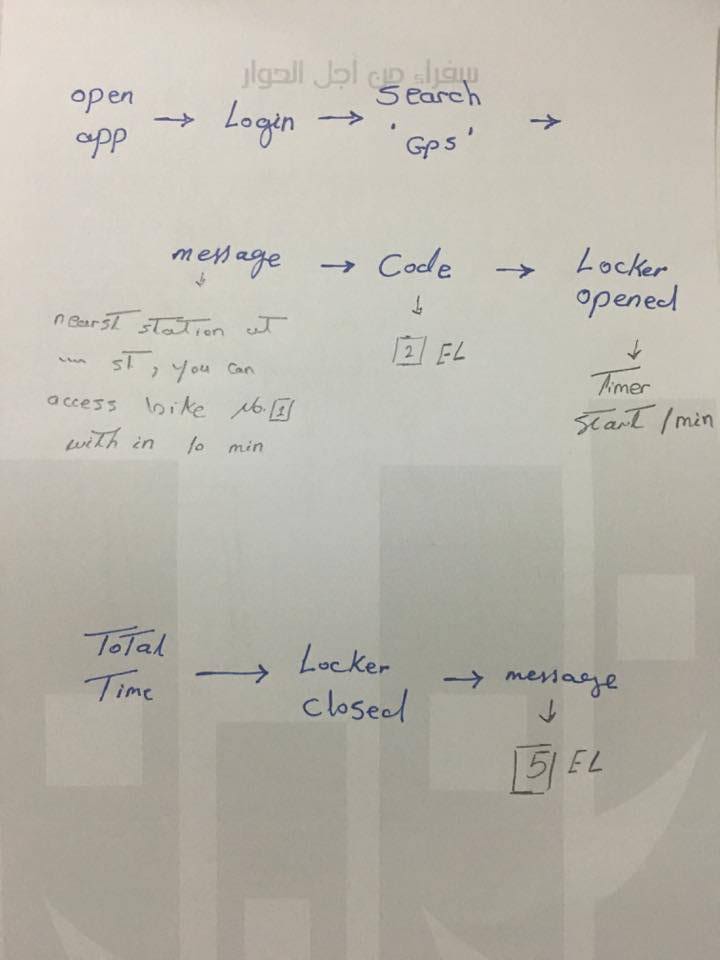 سفراء من أجل الحوار
open app → Login → Search 'GPS' →
message → Code → Locker opened
↓ ↓ ↓
nearst station at
st, you can
access bike No. 1
with in 10 min
2 EL
Timer
Start /min
Total Time → Locker closed → message
↓
5 EL